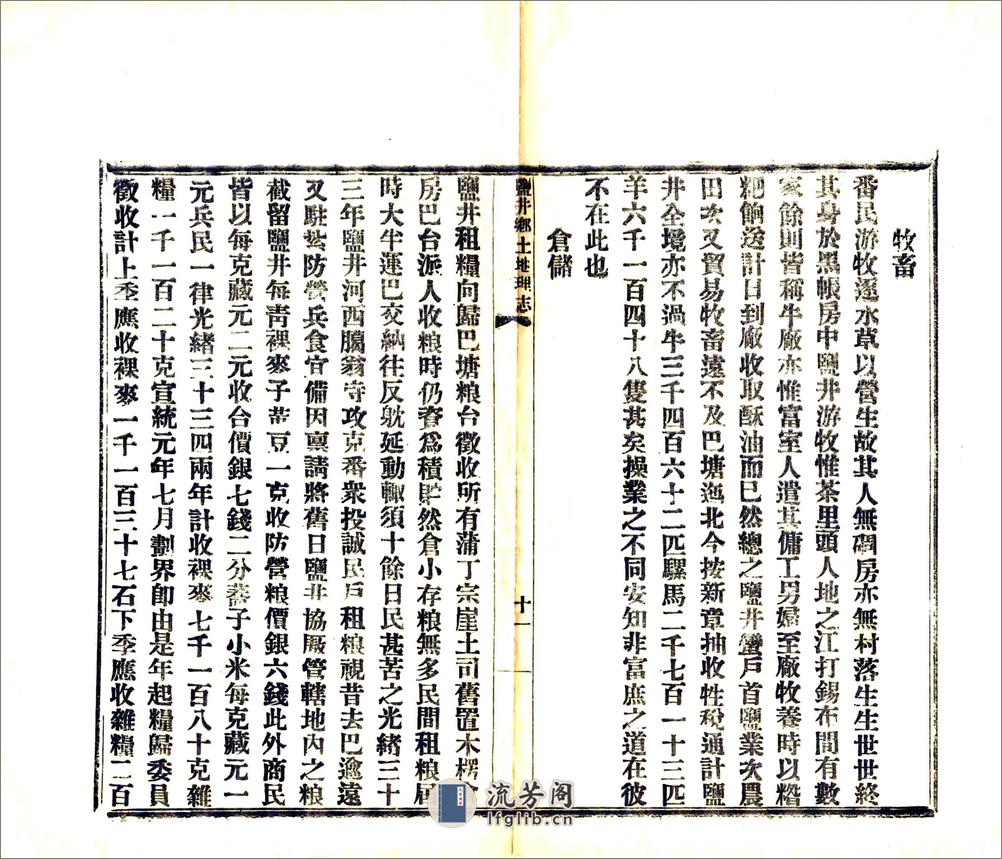 牧畜
番民游牧逐水草以營生故其人無碉房亦無村落生生世世終
其身於黑帳房中鹽井游牧惟茶里頭人地之江打錫布間有數
家餘則皆稱牛廠亦惟富室人遣其傭工男婦至廠牧養時以糌
粑餉送計日到廠收取酥油而已然總之鹽井蠻戶首鹽業次農
田次又貿易牧畜遠不及巴塘迤北今按新章抽收牲稅通計鹽
井全境亦不過牛三千四百六十二匹騾馬二千七百一十三匹
羊六千一百四十八隻甚矣操業之不同安知非富庶之道在彼
不在此也
倉儲
鹽井鄉土地理志
十一
鹽井租糧向歸巴塘粮台徵收所有蒲丁宗崖土司舊置木楞
房巴台派人收粮時仍資爲積貯然倉小存粮無多民間租粮屆
時大半運巴交納往反躭延動輒須十餘日民甚苦之光緒三十
三年鹽井河西臈翁寺攻克番衆投誠民戶租粮視昔去巴逾遠
又駐紮防營兵食宜備因稟請將舊日鹽井協厫管轄地內之粮
截留鹽井每靑稞麥子荳豆一克收防營粮價銀六錢此外商民
皆以每克藏元二元收台價銀七錢二分蕎子小米每克藏元一
元兵民一律光緒三十三四兩年計收稞麥七千一百八十克雜
糧一千一百二十克宣統元年七月劃界卽由是年起糧歸委員
徵收計上季應收稞麥一千一百三十七石下季應收雜糧二百
流芳阁
lfglib.cn